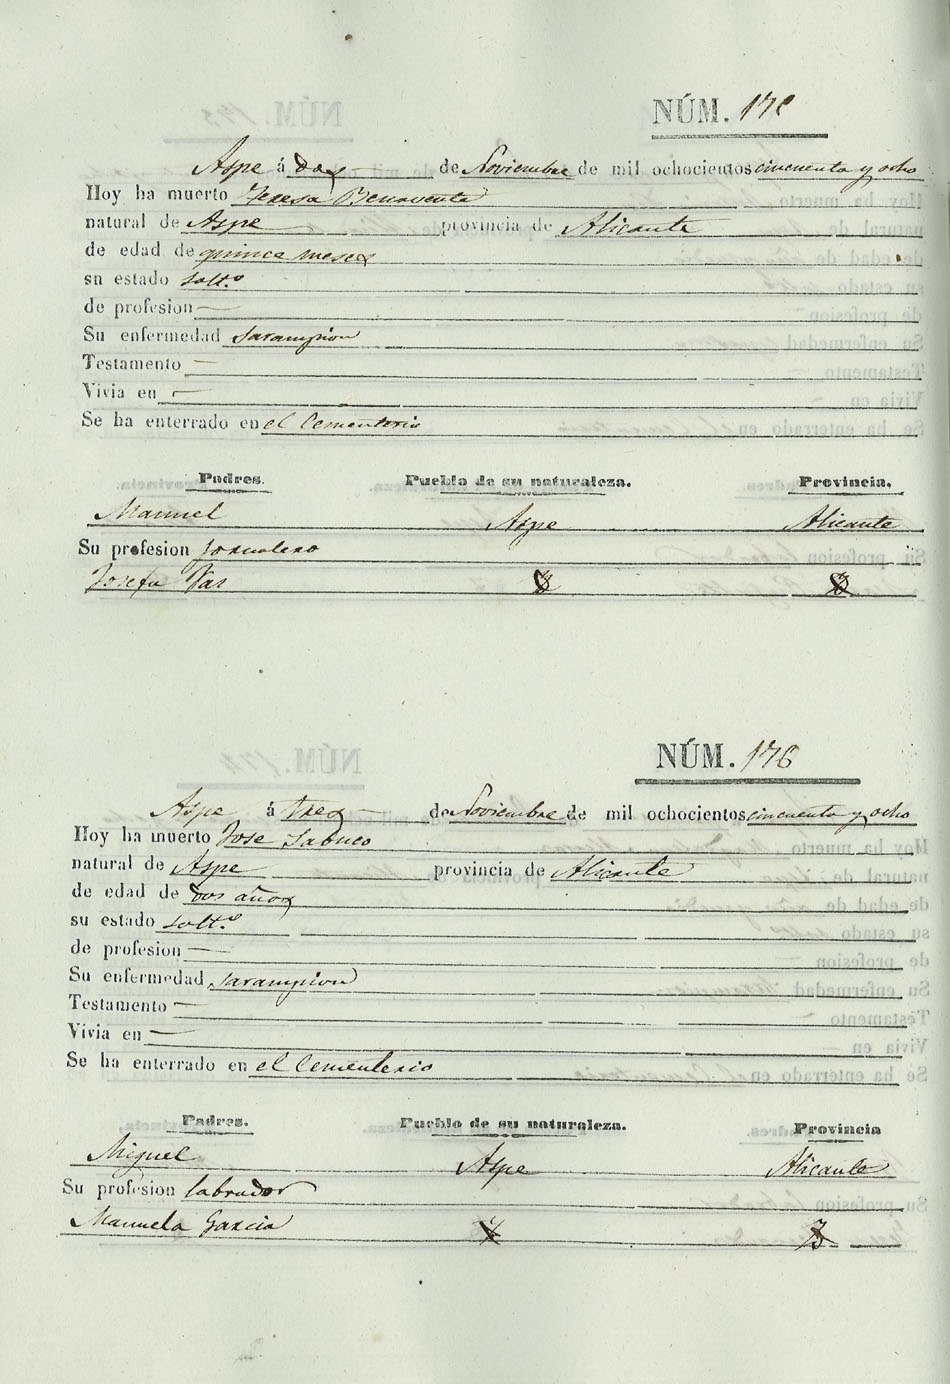 NÚM. 175
Aspe á dos de Noviembre de mil ochocientos cincuenta y ocho
Hoy ha muerto Teresa Benavente
natural de Aspe provincia de Alicante
de edad de quince meses
su estado solt.º
de profesion —
Su enfermedad sarampion
Testamento —
Vivia en —
Se ha enterrado en el Cementerio
Padres. Pueblo de su naturaleza. Provincia.
Manuel Aspe Alicante
Su profesion Jornalero
Josefa Vas
NÚM. 176
Aspe á tres de Noviembre de mil ochocientos cincuenta y ocho
Hoy ha muerto Jose Sabuco
natural de Aspe provincia de Alicante
de edad de dos años
su estado solt.º
de profesion —
Su enfermedad sarampion
Testamento —
Vivia en —
Se ha enterrado en el Cementerio
Padres. Pueblo de su naturaleza. Provincia
Miguel Aspe Alicante
Su profesion labrador
Manuela Garcia